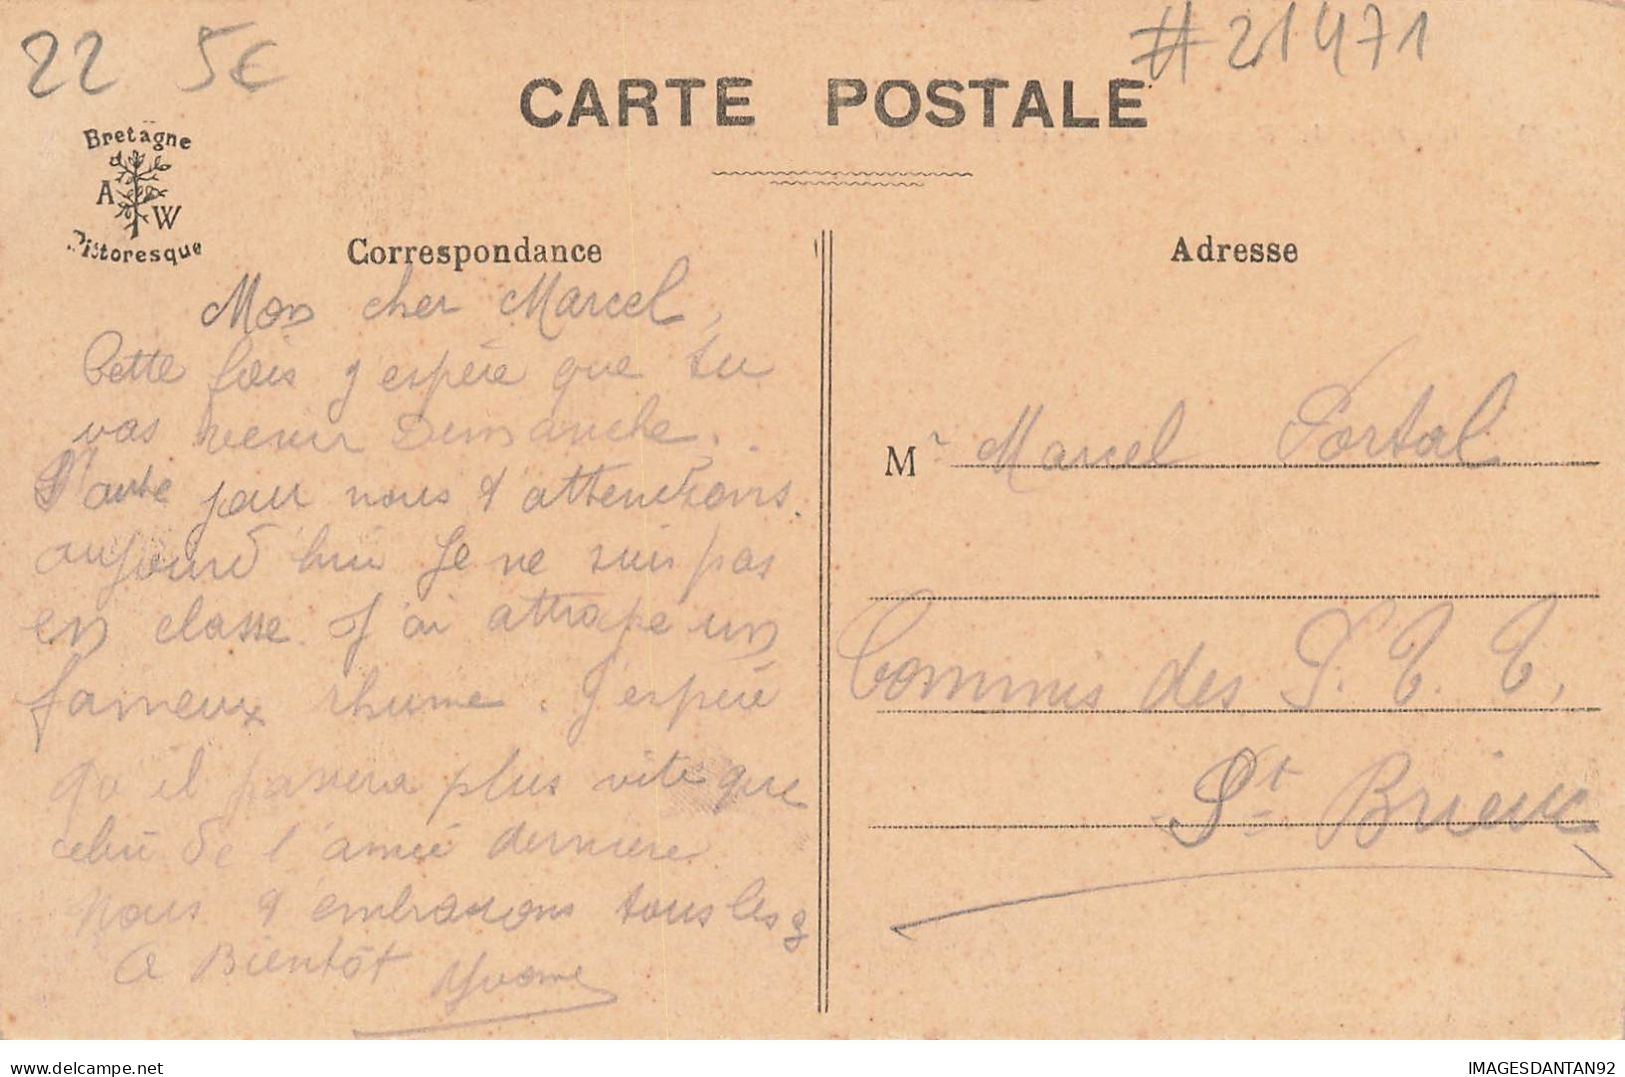 22 5€ #21471
CARTE POSTALE
Bretagne
A W
Pittoresque
Correspondance
Mon cher Marcel,
Cette fois j'espère que tu
vas venir Dimanche.
L'autre jour nous t'attendions.
aujourd'hui Je ne suis pas
en classe J'ai attrapé un
fameux rhume. J'espère
qu'il passera plus vite que
celui de l'année dernière
Nous t'embrassons tous les 3
A Bientôt Yvonne
Adresse
Mr Marcel Portal
Commis des P.T.T.
St Brieuc
delcampe.net
IMAGESDANTAN92